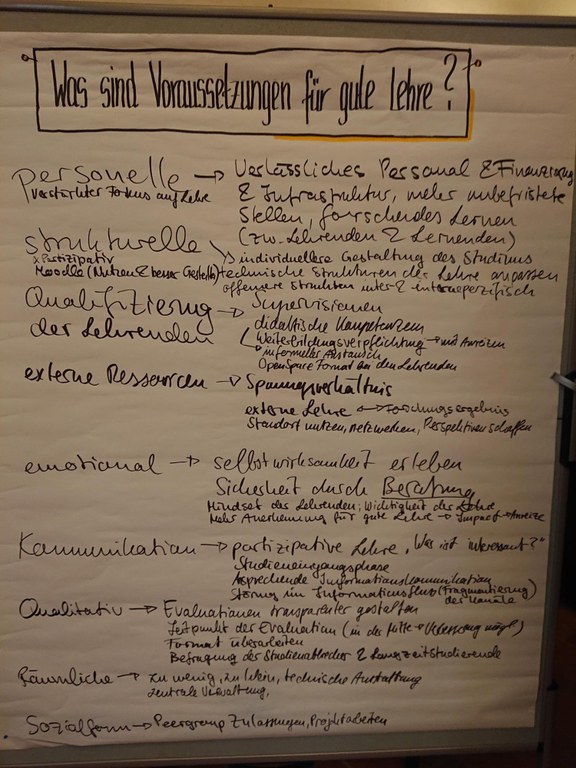 Was sind Voraussetzungen für gute Lehre?
personelle → Verlässliches Personal & Finanzierung
verstärkter Fokus auf Lehre
& Infrastruktur, mehr unbefristete
Stellen, forschendes Lernen
(zw. Lehrenden & Lernenden)
strukturelle → individuellere Gestaltung des Studiums
x Partizipativ
Moodle (Nutzen & bessere Gestaltung) technische Strukturen der Lehre anpassen
offenere Strukturen inter &
Qualifizierung → Supervisionen
der Lehrenden
didaktische Kompetenzen
Weiterbildungsverpflichtung → mit Anreizen
informeller Austausch
OpenSpace Format bei den Lehrenden
externe Ressourcen → Spannungsverhältnis
externe Lehre ↔ Forschungsergebnis
Standort nutzen, netzwerken, Perspektiven schaffen
emotional → selbstwirksamkeit erleben
Sicherheit durch Beratung
Mindset des Lehrenden; Wichtigkeit der Lehre
Mehr Anerkennung für gute Lehre → Impact → Anreize
Kommunikation → partizipative Lehre „Was ist interessant?"
Studieneingangsphase
Informationskommunikation
Störung im Informationsfluss (Fragmentierung)
der Kanäle
Qualitativ → Evaluationen transparenter gestalten
Zeitpunkt der Evaluation (in der Mitte →
Format überarbeiten
Befragung der Studienabbrecher & Langzeitstudierende
Räumliche → zu wenig, zu klein, technische Ausstattung
zentrale Verwaltung,
Sozialform → Peergroup Zulassungen, Projektarbeiten